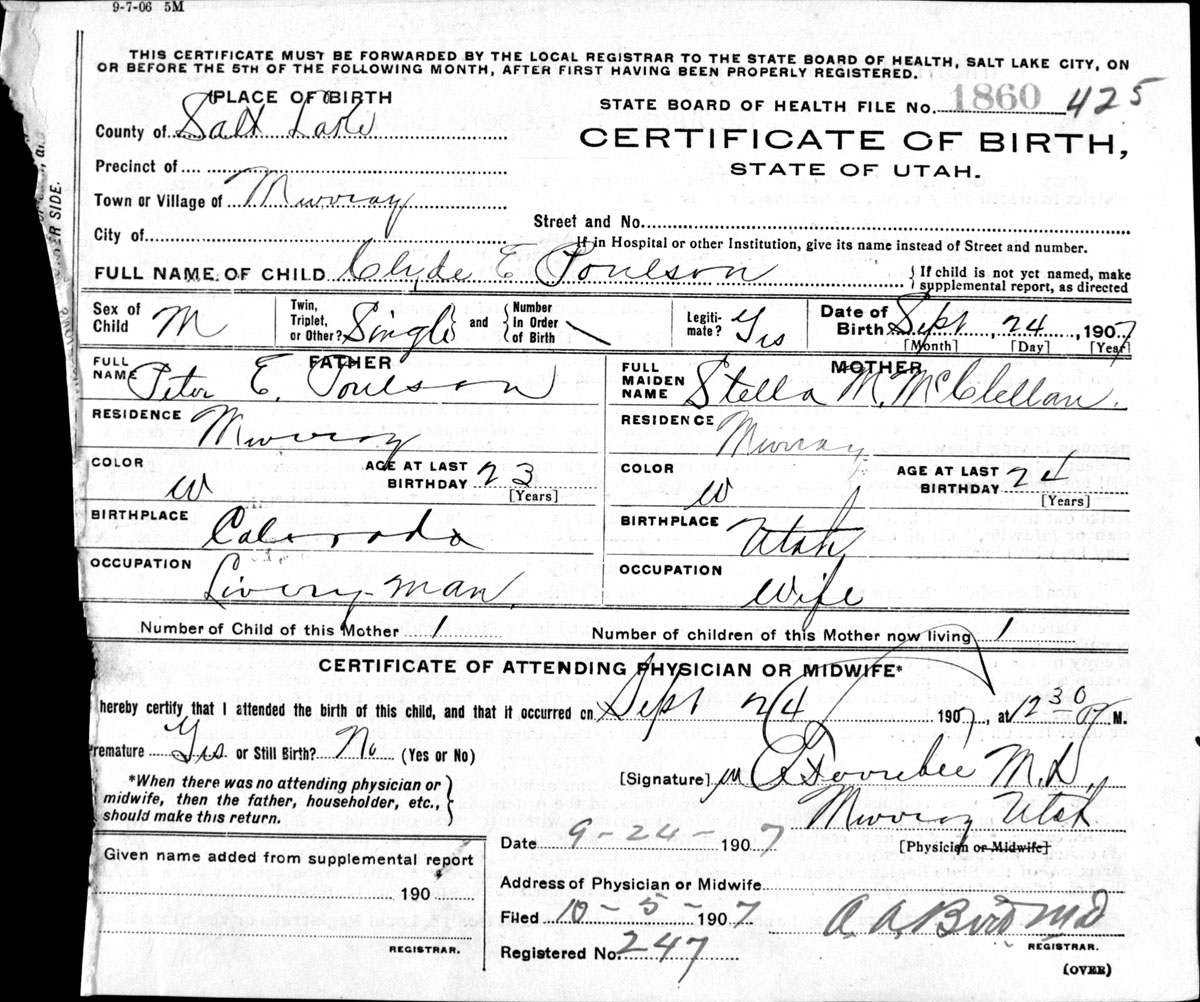 9-7-06 5M
THIS CERTIFICATE MUST BE FORWARDED BY THE LOCAL REGISTRAR TO THE STATE BOARD OF HEALTH, SALT LAKE CITY, ON
OR BEFORE THE 5TH OF THE FOLLOWING MONTH, AFTER FIRST HAVING BEEN PROPERLY REGISTERED.
PLACE OF BIRTH
STATE BOARD OF HEALTH FILE No. 1860 425
County of Salt Lake
CERTIFICATE OF BIRTH,
Precinct of
STATE OF UTAH.
Town or Village of Murray
Street and No.
City of
If in Hospital or other Institution, give its name instead of Street and number.
FULL NAME OF CHILD Clyde E Poulson } If child is not yet named, make supplemental report, as directed
Sex of Child M Twin, Triplet, or Other? Single and Number in Order of Birth Legitimate? Yes Date of Birth Sept 24, 1907
[Month] [Day] [Year]
FATHER MOTHER
FULL NAME Peter E. Poulson FULL MAIDEN NAME Stella M. McClellan.
RESIDENCE Murray RESIDENCE Murray
COLOR W AGE AT LAST BIRTHDAY 23 [Years] COLOR W AGE AT LAST BIRTHDAY [Years]
BIRTHPLACE Colorado BIRTHPLACE Utah
OCCUPATION Livery-man. OCCUPATION Wife
Number of Child of this Mother 1 Number of children of this Mother now living 1
CERTIFICATE OF ATTENDING PHYSICIAN OR MIDWIFE*
hereby certify that I attended the birth of this child, and that it occurred on Sept 24 1907, at 12 30 M.
Premature Yes or Still Birth? No (Yes or No)
*When there was no attending physician or midwife, then the father, householder, etc., should make this return.
[Signature] M.D.,
Murray Utah
Date 9-24- 1907 [Physician or Midwife]
Given name added from supplemental report
190
Address of Physician or Midwife
Filed 10-5- 1907 A. A. Bird MD
REGISTRAR. REGISTRAR.
Registered No. 247
(OVER)
SIDE.